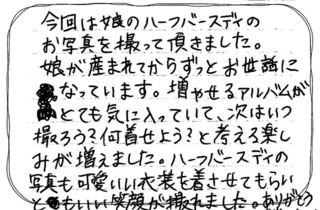 今回は娘のハーフバースディの
お写真を撮って頂きました。
娘が産まれてからずっとお世話に
なっています。増やせるアルバムが
とても気に入っていて、次はいつ
撮ろう?何着せよう?と考える楽し
みが増えました。ハーフバースディの
写真も可愛いい衣装を着させてもらい
とてもいい笑顔が撮れました。ありがとう